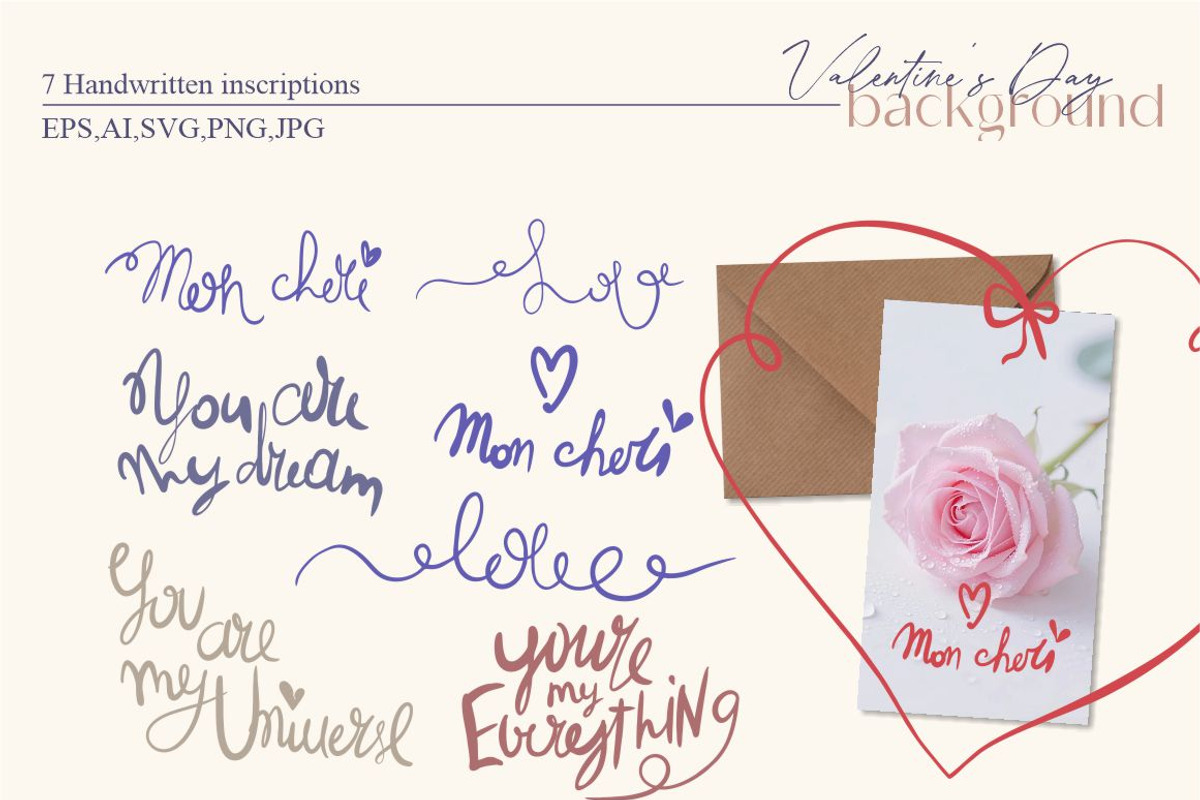 7 Handwritten inscriptions
EPS,AI,SVG,PNG,JPG
Valentine's Day
background
Mon cheri
Love
You are
my dream
Mon cheri
love
You
are
my Universe
you're
my
Everything
Mon cheri